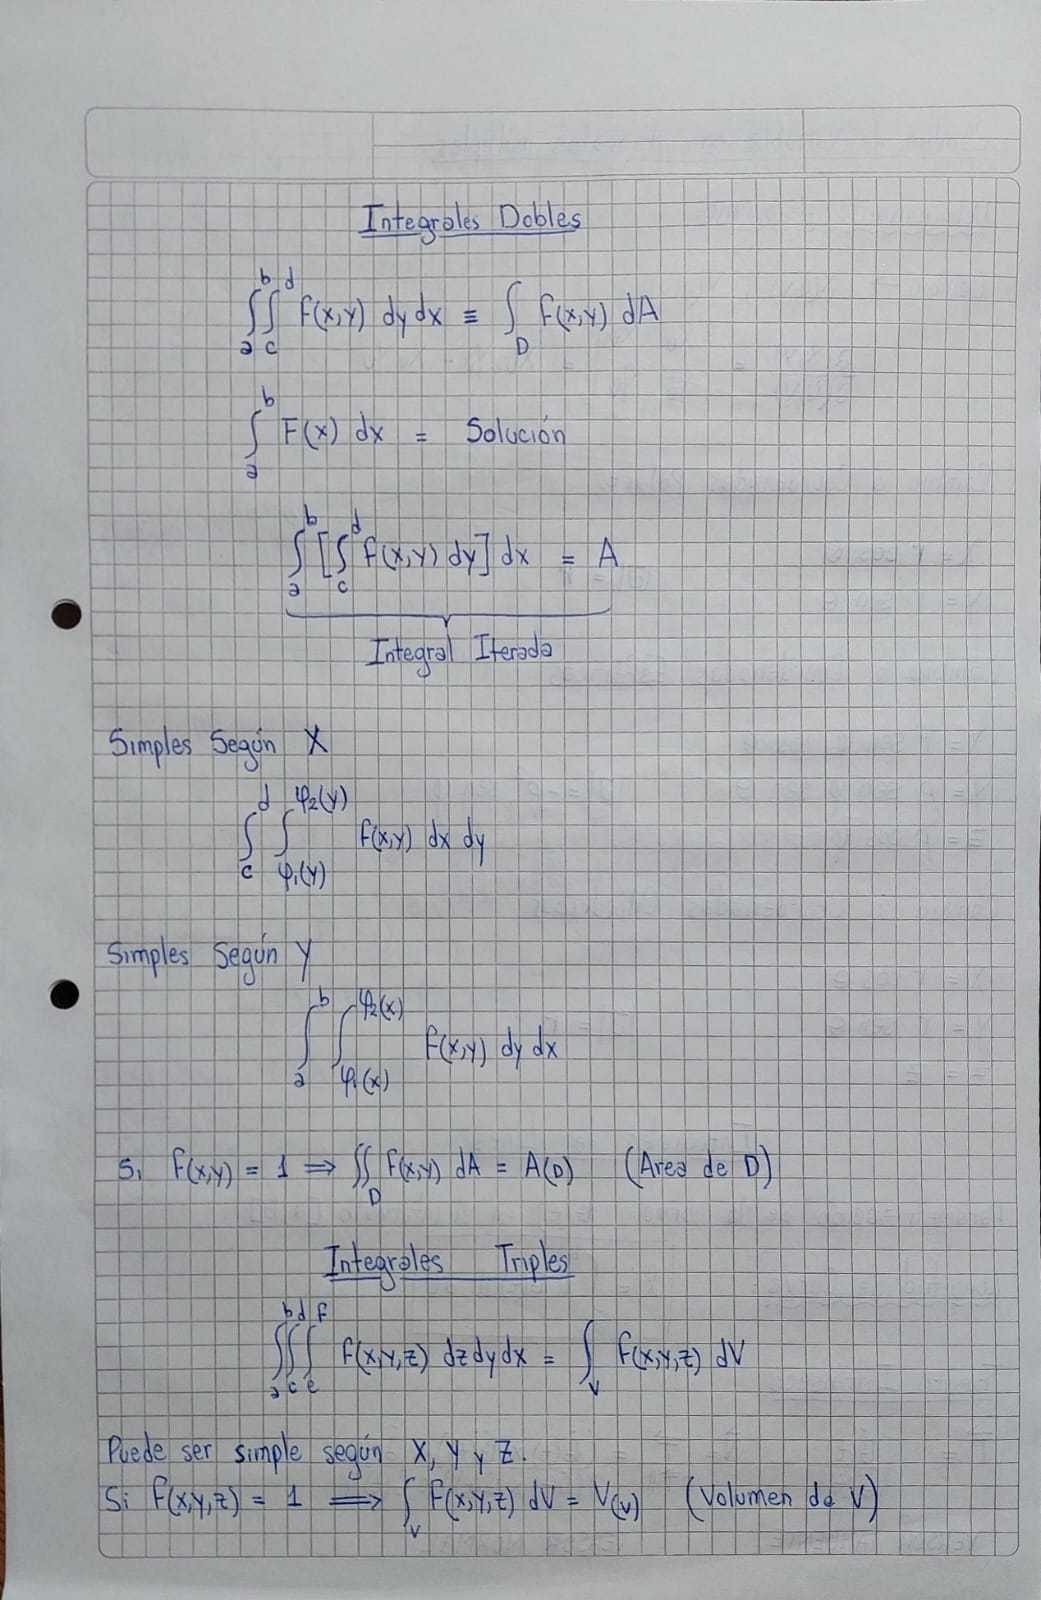 Integrales Dobles
∫_a^b ∫_c^d f(x,y) dy dx ≡ ∫_D f(x,y) dA
∫_a^b F(x) dx = Solución
∫_a^b [∫_c^d f(x,y) dy] dx = A
Integral Iterada
Simples Según X
∫_c^d ∫_{φ₁(y)}^{φ₂(y)} f(x,y) dx dy
Simples Según Y
∫_a^b ∫_{φ₁(x)}^{φ₂(x)} f(x,y) dy dx
Si f(x,y) = 1 ⇒ ∬_D f(x,y) dA = A(D) (Area de D)
Integrales Triples
∫_a^b ∫_c^d ∫_e^f f(x,y,z) dz dy dx = ∫_V f(x,y,z) dV
Puede ser simple según X, Y y Z.
Si f(x,y,z) = 1 ⟹ ∫_V f(x,y,z) dV = V(v) (Volumen de V)